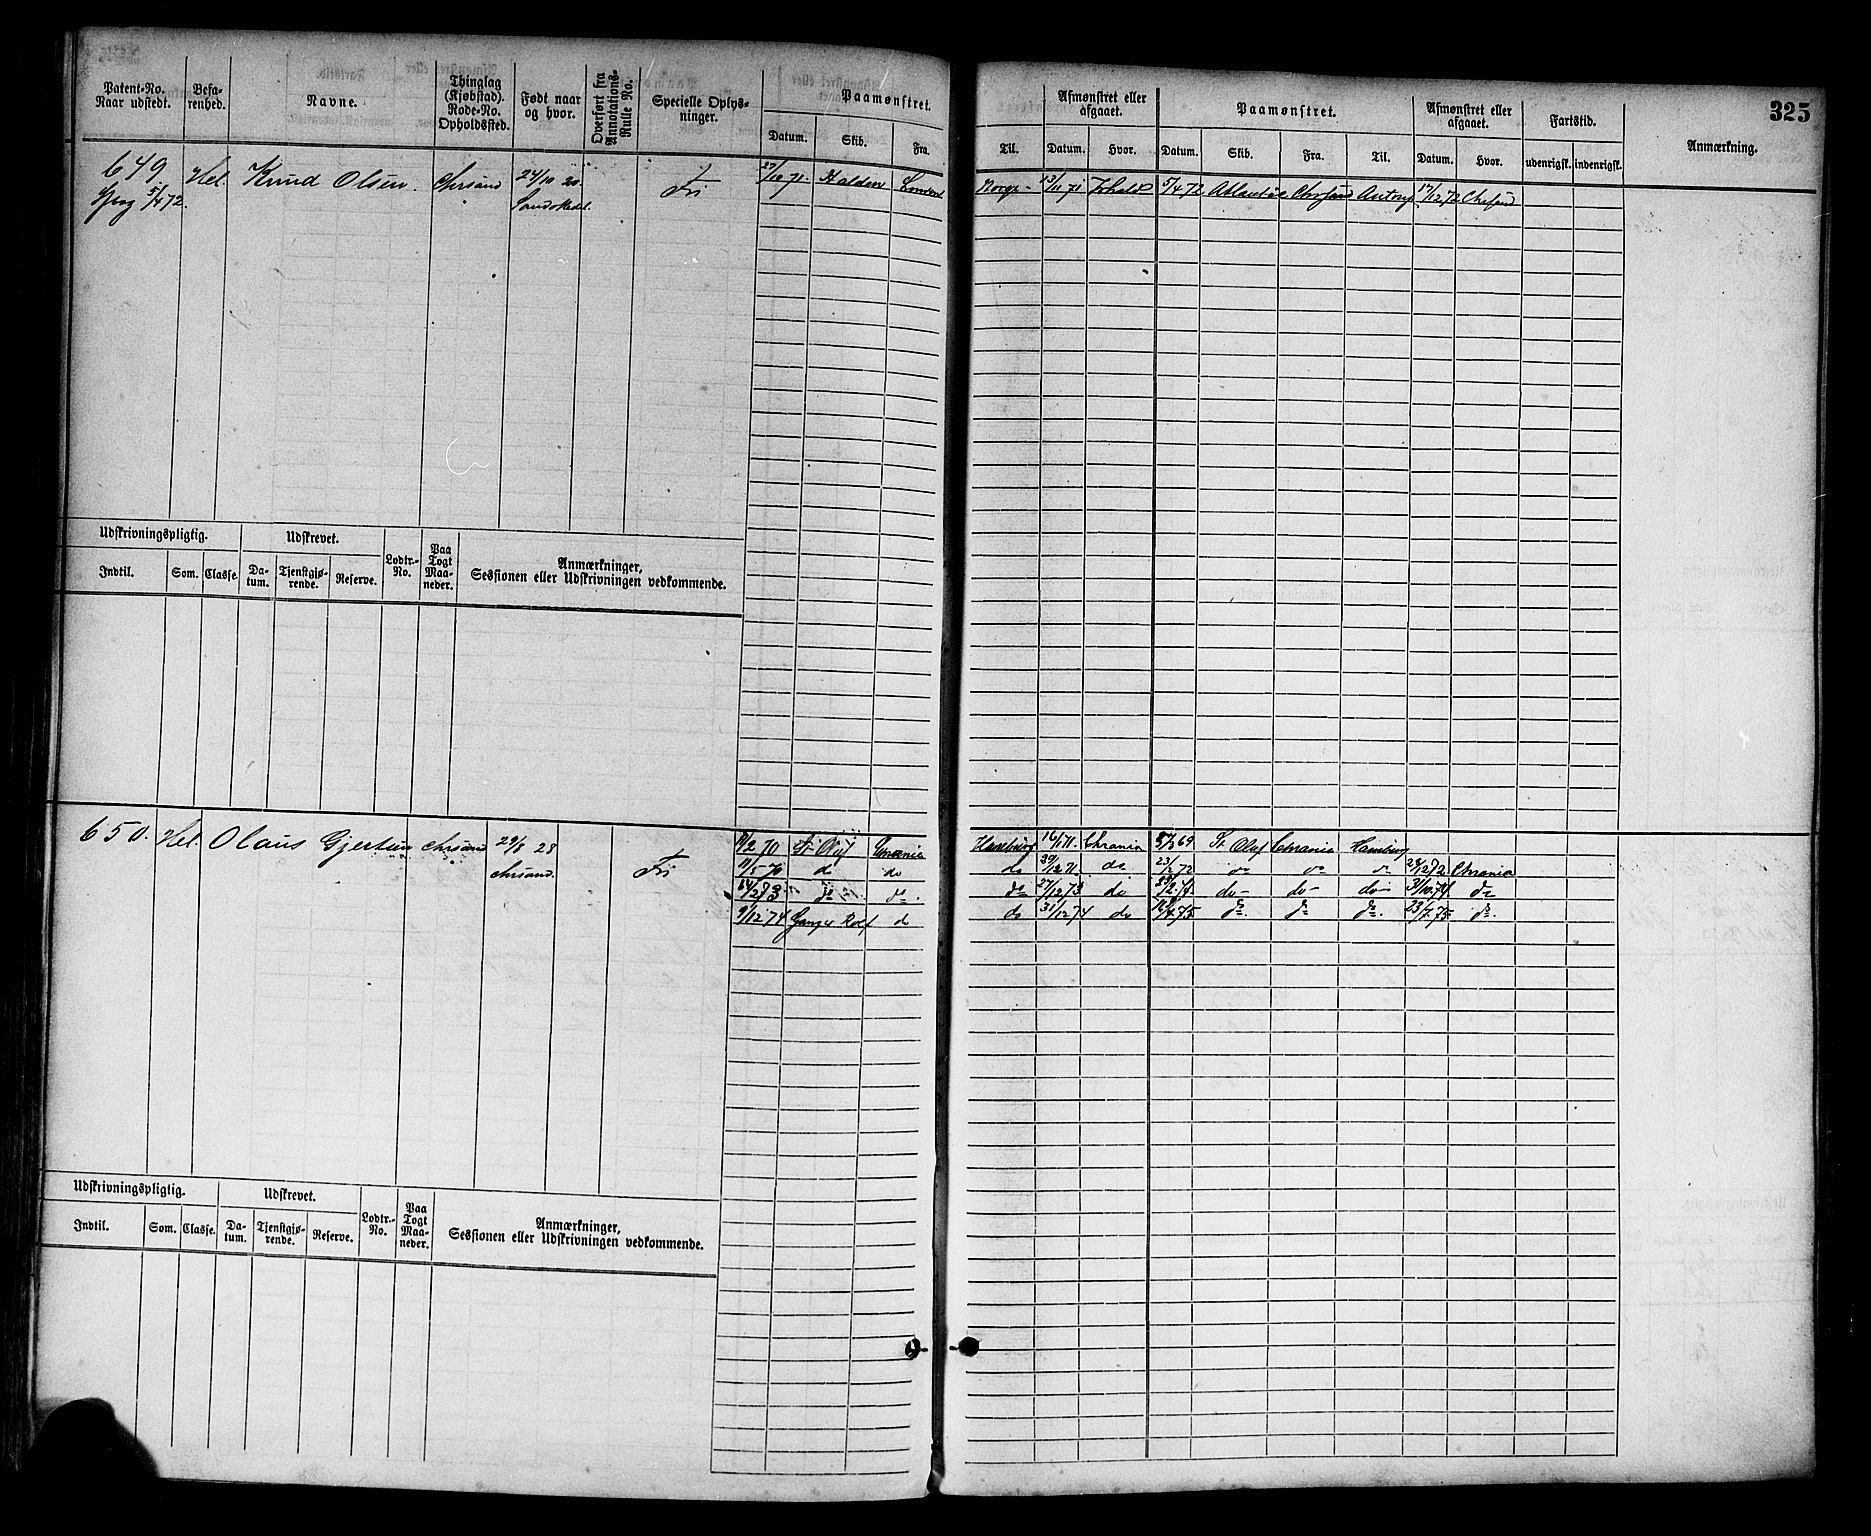 325
Patent-No. Naar udstedt.
Befarenhed.
Navne.
Thinglag (Kjøbstad). Rode-No. Opholdssted.
Født naar og hvor.
Overført fra Annotations-Rulle No.
Specielle Oplysninger.
Paamønstret.
Datum. Skib. Fra.
Til.
Afmønstret eller afgaaet.
Datum. Hvor.
Paamønstret.
Datum. Skib. Fra. Til.
Afmønstret eller afgaaet.
Datum. Hvor.
Fartstid.
udenrigsk. indenrigsk.
Anmærkning.
649 Hel. Knud Olsen. Chrsand 24/10 20. Fri 27/10 71. Halden
5/4 72. Sandskedl.
Norge 13/11 71 5/4 72 Chrsand 17/12 72 Chrsand
Udskrivningspligtig. Udskrevet. Lodtr.-No. Paa Togt Maaneder. Anmærkninger, Sessionen eller Udskrivningen vedkommende.
Indtil. Som. Classe. Datum. Tjenstgjørende. Reserve.
650. Hel. Olaus Gjertsen Chrsand 29/8 28 Fri St Olaf Chrania
Chrsand.
Hamburg 16/1 71. Chrania St. Olaf Chrania Hamburg
11/5 70 do do
do 30/12 71 do 23/2 72 do do do 24/12 72 Chrania
do do
do 27/12 73 do do do do do
9/12 74 Ganger Rolf do
do 31/12 74 do do do do 23/7 75 do
Udskrivningspligtig. Udskrevet. Lodtr.-No. Paa Togt Maaneder. Anmærkninger, Sessionen eller Udskrivningen vedkommende.
Indtil. Som. Classe. Datum. Tjenstgjørende. Reserve.